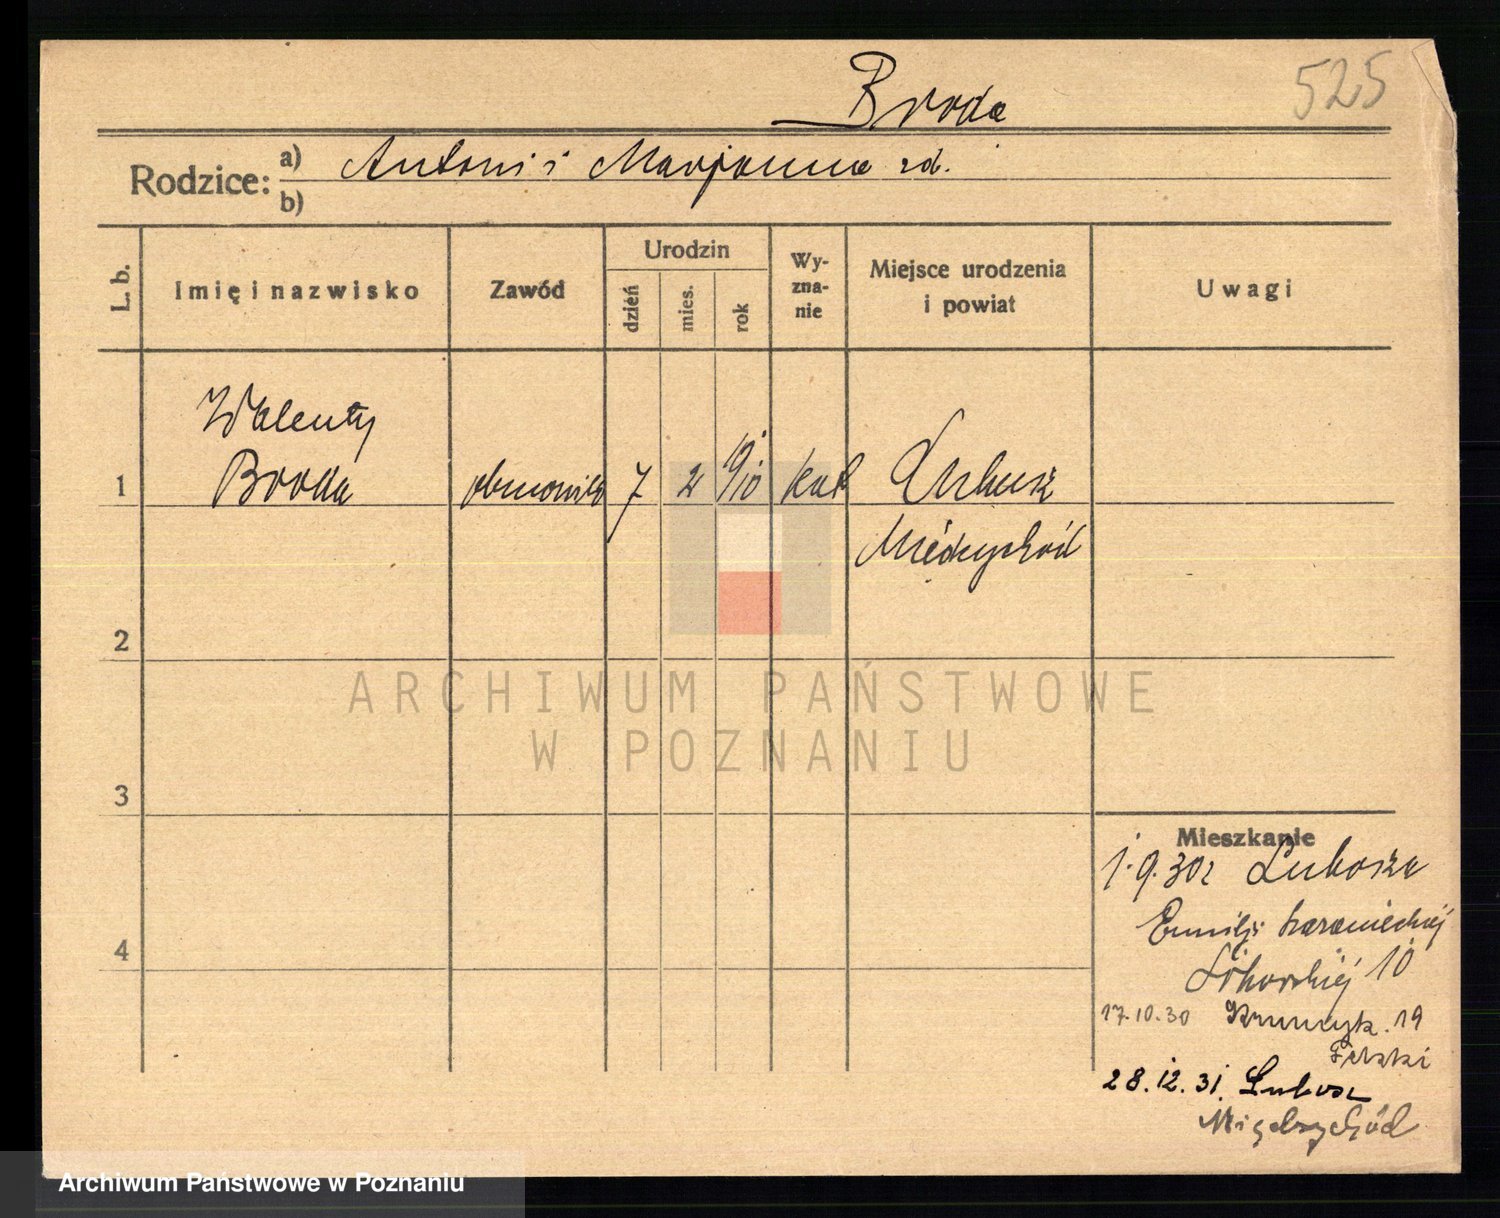 Broda
525
Rodzice: a) Antoni i Marjanna zd.
b)
L. b.
Imię i nazwisko
Zawód
Urodzin
dzień
mies.
rok
Wy-
zna-
nie
Miejsce urodzenia
i powiat
Uwagi
1
Walenty
Broda
7
2
910
kat
Lubusz
Międzychód
2
3
4
Mieszkanie
1.9.30 z Lubosza
Emilji
10
17.10.30
19
28.12.31. Lubosz
Międzychód
ARCHIWUM PAŃSTWOWE
W POZNANIU
Archiwum Państwowe w Poznaniu